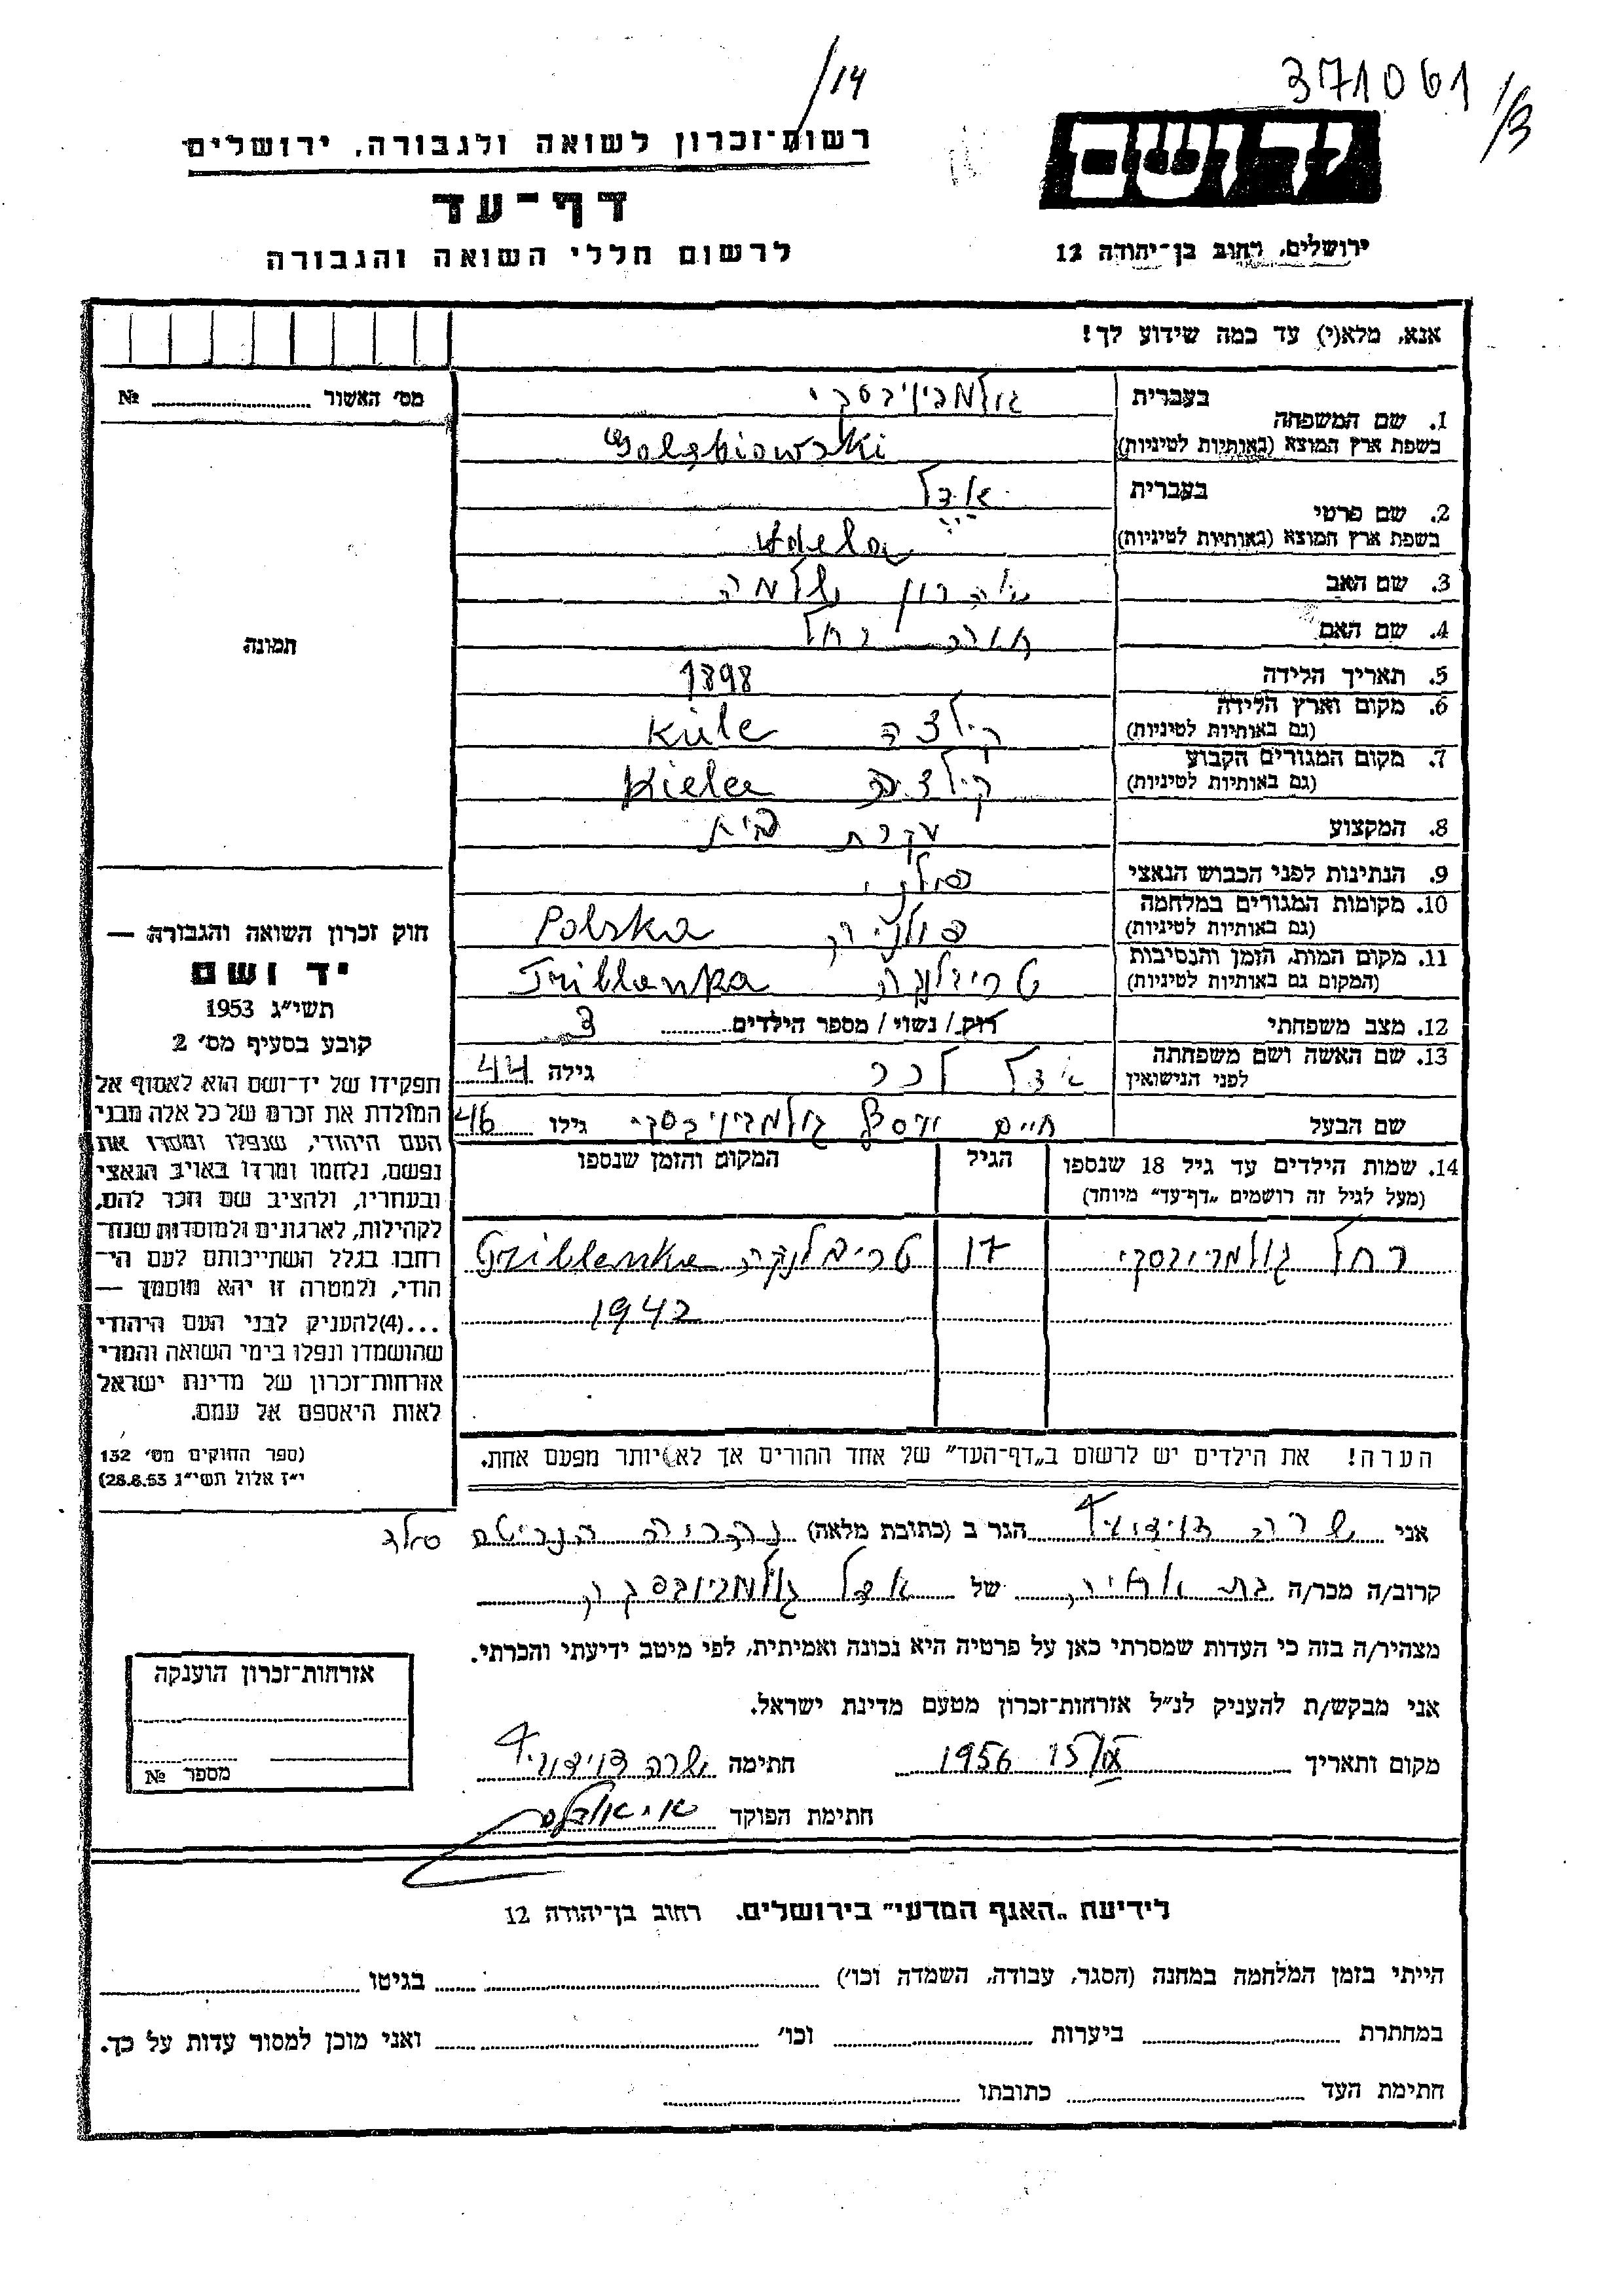 371061
/14
/3
ידושם
רשות־זכרון לשואה ולגבורה, ירושלים
דף־עד
לרשום חללי השואה והגבורה
ירושלים, רחוב בן־יהודה 12
אנא, מלא(י) עד כמה שידוע לך!
מס׳ האשור № 
תמונה
1. שם המשפחה בעברית גולמביובסקי
בשפת ארץ המוצא (באותיות לטיניות) Golębiowski
2. שם פרטי בעברית אדל
בשפת ארץ המוצא (באותיות לטיניות) Adela
3. שם האב אהרון שלמה
4. שם האם רחל
5. תאריך הלידה 1898
6. מקום וארץ הלידה (גם באותיות לטיניות) קילצה Kiele
7. מקום המגורים הקבוע (גם באותיות לטיניות) קילצה Kielce
8. המקצוע עקרת בית
9. הנתינות לפני הכבוש הנאצי פולני
10. מקומות המגורים במלחמה (גם באותיות לטיניות) פולניה Polska
11. מקום המות, הזמן והנסיבות (המקום גם באותיות לטיניות) טריבלנקה Triblanka
12. מצב משפחתי רוק/ נשוי/ מספר הילדים 3
13. שם האשה ושם משפחתה לפני הנישואין אדל לכר גילה 44
שם הבעל חיים יוסף גולמביובסקי גילו 46
14. שמות הילדים עד גיל 18 שנספו (מעל לגיל זה רושמים „דף־עד״ מיוחד) הגיל המקום והזמן שנספו
רחל גולמביובסקי 17 טריבלנקה Triblanka
1942
הערה! את הילדים יש לרשום ב„דף־העד״ של אחד ההורים אך לא יותר מפעם אחת.
חוק זכרון השואה והגבורה —
יד ושם
תשי״ג 1953
קובע בסעיף מס׳ 2
תפקידו של יד־ושם הוא לאסוף אל
המולדת את זכרם של כל אלה מבני
העם היהודי, שנפלו ומסרו את
נפשם, נלחמו ומרדו באויב הנאצי
ובעוזריו, ולהציב שם וזכר להם,
לקהילות, לארגונים ולמוסדות שנח־
רבו בגלל השתייכותם לעם הי־
הודי, ולמטרה זו יהא מוסמך —
...(4)להעניק לבני העם היהודי
שהושמדו ונפלו בימי השואה והמרי
אזרחות־זכרון של מדינת ישראל
לאות היאספם אל עמם.
(ספר החוקים מס׳ 132
י״ז אלול תשי״ג 28.8.53)
אני שרה דוידוביץ הגר ב (כתובת מלאה) נהריה הנריטה סולד
קרוב/ה מכר/ה בת אחיה של אדל גולמביובסקי
מצהיר/ה בזה כי העדות שמסרתי כאן על פרטיה היא נכונה ואמיתית, לפי מיטב ידיעתי והכרתי.
אני מבקש/ת להעניק לנ״ל אזרחות־זכרון מטעם מדינת ישראל.
מקום ותאריך 1956 חתימה שרה דוידוביץ
חתימת הפוקד
אזרחות־זכרון הוענקה
מספר №
לידיעת „האגף המדעי״ בירושלים. רחוב בן־יהודה 12
הייתי בזמן המלחמה במחנה (הסגר, עבודה, השמדה וכו׳) בגיטו
במחתרת ביערות וכו׳ ואני מוכן למסור עדות על כך.
חתימת העד כתובתו